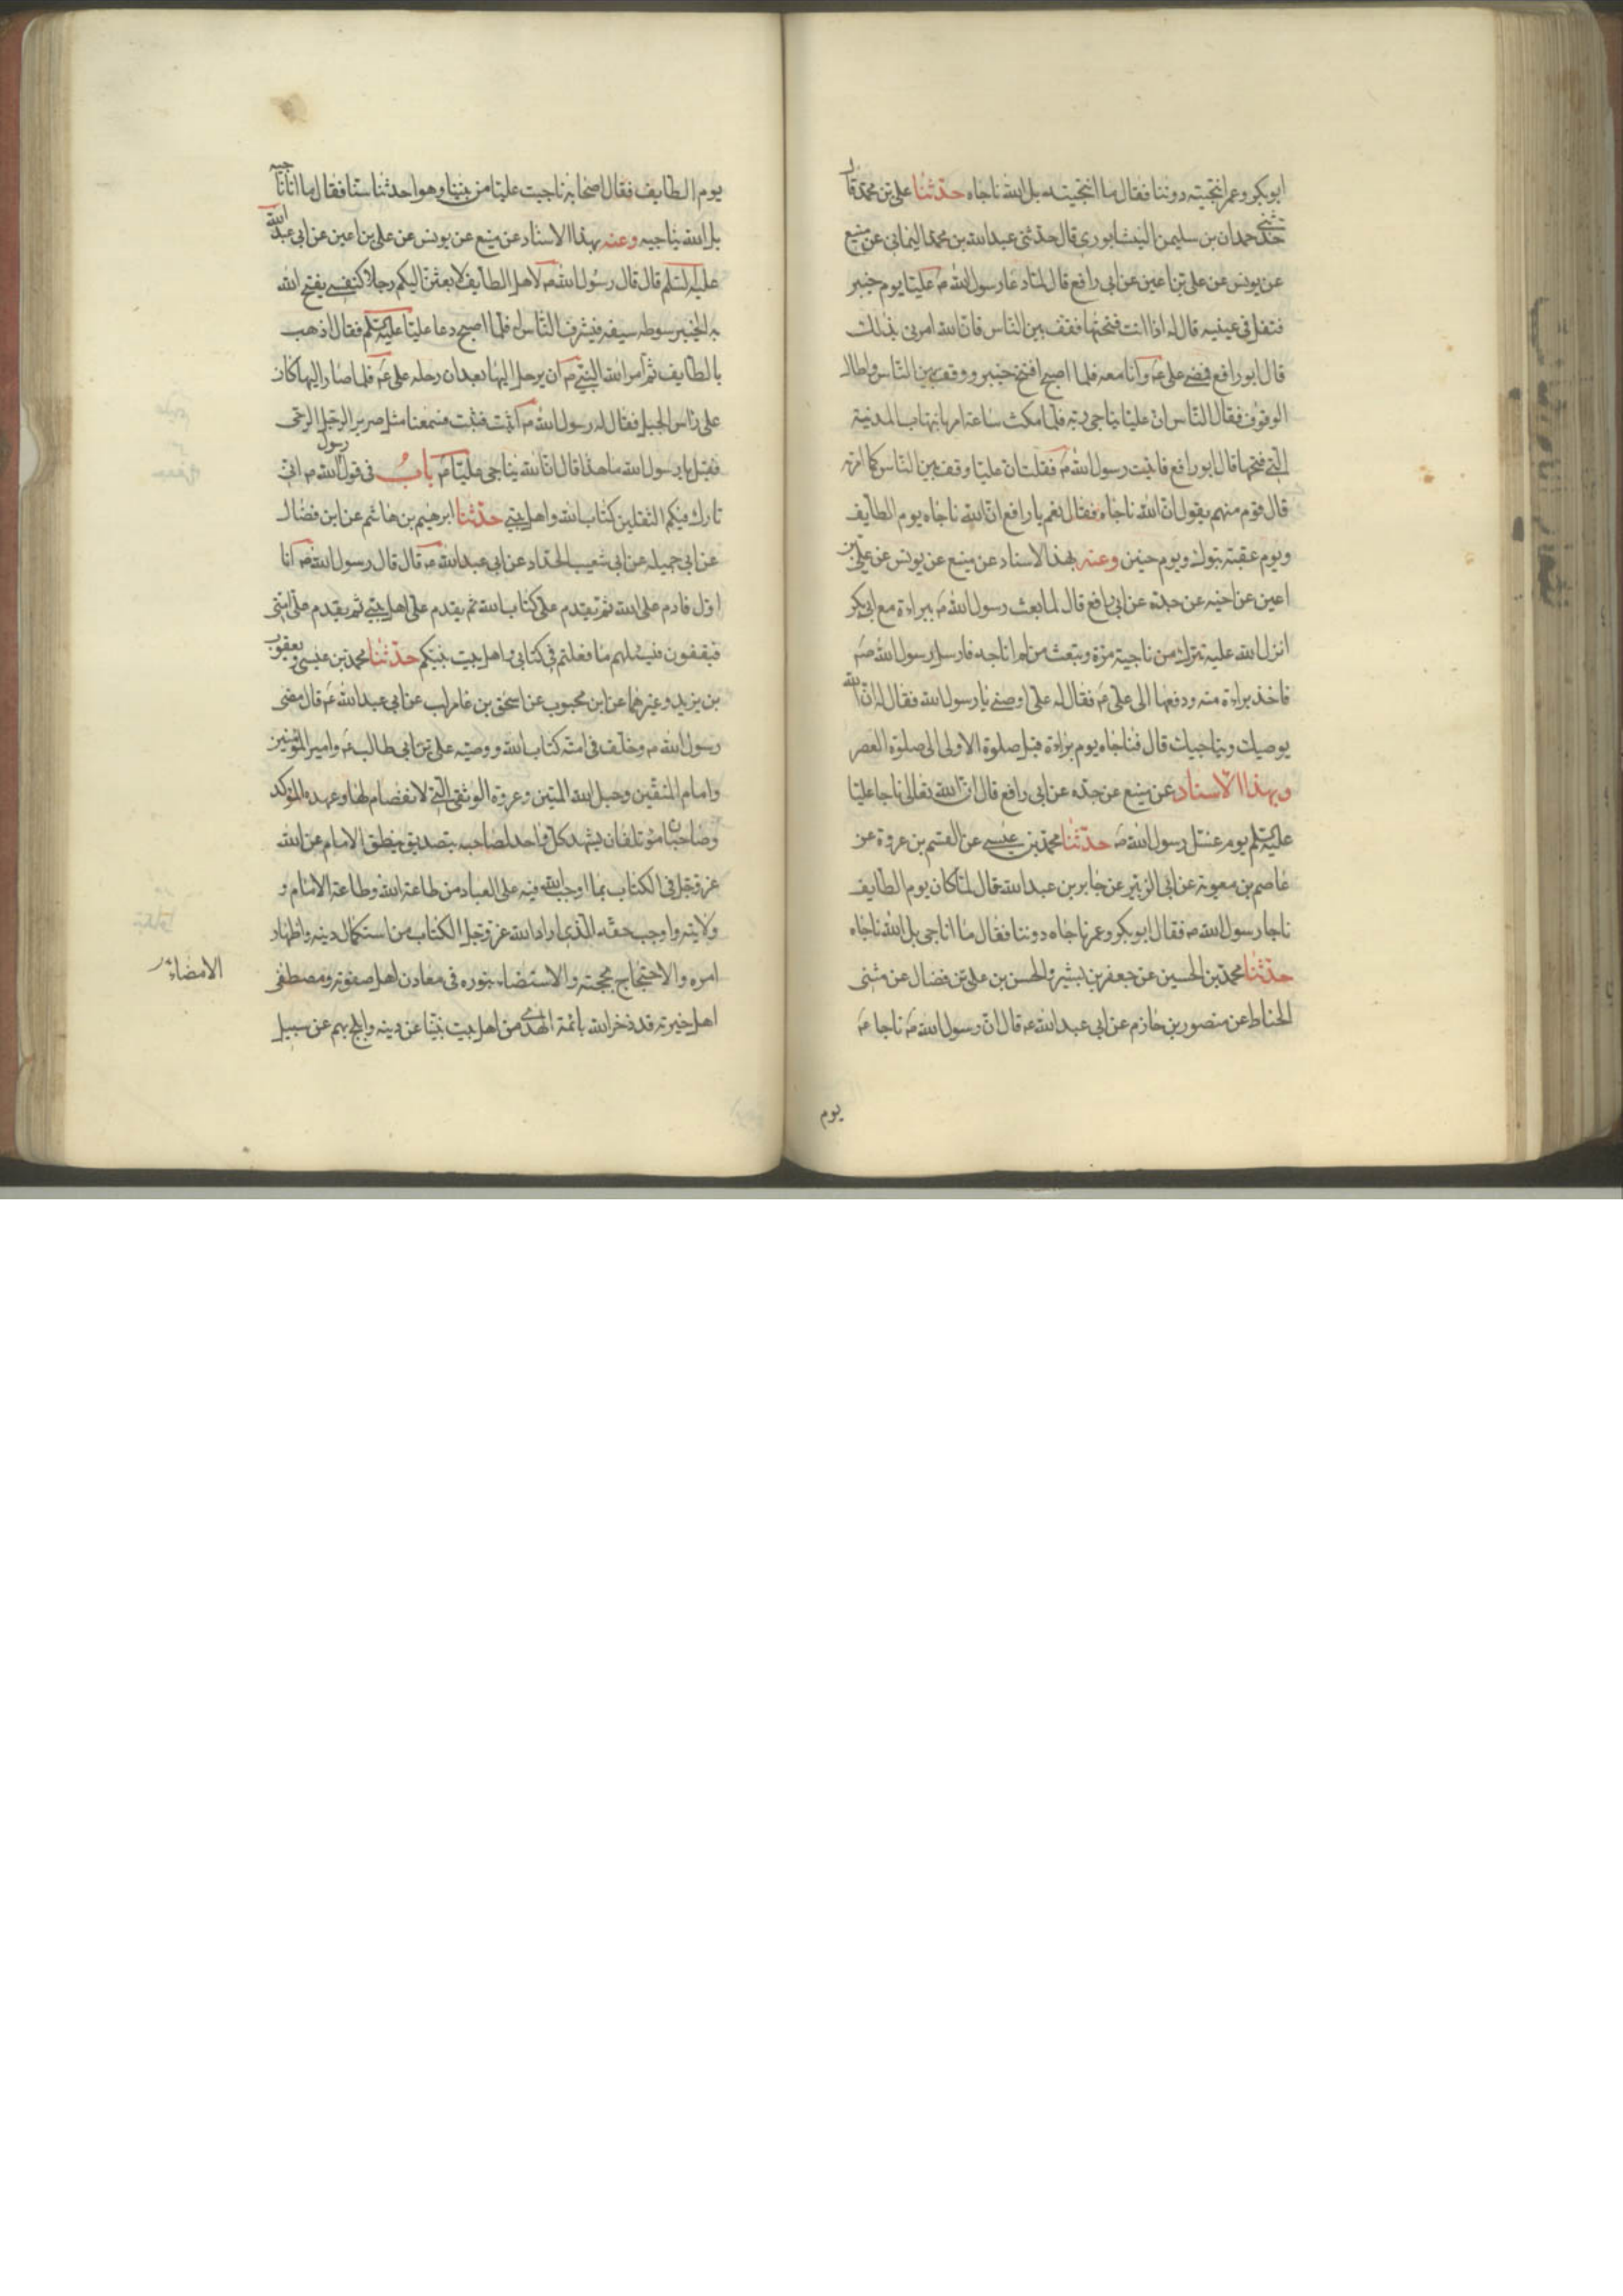 ابوبكر وعمر انتجيته دوننا فقال ما انتجيته بل الله ناجاه حدثنا علي بن محمد قال
حدثني حمدان بن سليمن النيشابوري قال حدثني عبدالله بن محمد اليماني عن منيع
عن يونس عن علي بن اعين عن ابي رافع قال لما دعا رسول الله ص عليّا يوم خيبر
فتفل في عينيه قال له اذا انت فتحتها فقف بين الناس فان الله امرني بذلك
قال ابو رافع فمضى علي ع وانا معه فلما اصبح افتتح خيبر ووقف بين الناس واطال
الوقوف فقال الناس ان عليّا يناجي ربه فلما مكث ساعة امر بانتهاب المدينة
التي فتحها قال ابو رافع فاتيت رسول الله ص فقلت ان عليّا وقف بين الناس كما امرته
قال قوم منهم يقول ان الله ناجاه فقال نعم يا رافع ان الله ناجاه يوم الطايف
ويوم عقبة تبوك ويوم حنين وعنه بهذا الاسناد عن منيع عن يونس عن علي بن
اعين عن اخيه عن جده عن ابي رافع قال لما بعث رسول الله ص ببراءة مع ابي بكر
انزل الله عليه تترك من ناجيته مرة وتبعث من لم اناجه فارسل رسول الله ص
فاخذ براءة منه ودفعها الى علي ع فقال له علي اوصني يا رسول الله فقال له ان الله
يوصيك ويناجيك قال فناجاه يوم براءة قبل صلوة الاولى الى صلوة العصر
وبهذا الاسناد عن منيع عن جده عن ابي رافع قال ان الله تعالى ناجا عليّا
عليه السلم يوم غسل رسول الله ص حدثنا محمد بن عيسى عن القسم بن عروة عن
عاصم بن معوية عن ابي الزبير عن جابر بن عبدالله قال لما كان يوم الطايف
ناجا رسول الله ص فقال ابوبكر وعمر ناجاه دوننا فقال ما انا اجي بل الله ناجاه
حدثنا محمد بن الحسين عن جعفر بن بشير والحسن بن علي بن فضال عن مثنى
الحناط عن منصور بن حازم عن ابي عبدالله ع قال ان رسول الله ص ناجا ع
يوم
يوم الطايف فقال اصحابه ناجيت عليّا من بيننا وهو احدثنا سنا فقال ما انا ناجيه
بل الله يناجيه وعنه بهذا الاسناد عن منيع عن يونس عن علي بن اعين عن ابي عبدالله
عليه السلم قال قال رسول الله ص لاهل الطايف لابعثن اليكم رجلا كنفسي يفتح الله
به الخيبر سوطه سيفه فيشرف الناس له فلما اصبح دعا عليّا عليه السلم فقال اذهب
بالطايف ثم امر الله النبي ص ان يرحل اليها بعد ان رحله علي ع فلما صار اليها كان
على راس الجبل فقال له رسول الله ص اثبت فثبت فسمعنا مثل صرير الرجل الرحى
فقيل يا رسول الله ما هذا قال ان الله يناجي عليّا ع باب في قول رسول الله ص اني
تارك فيكم الثقلين كتاب الله واهل بيتي حدثنا ابرهيم بن هاشم عن ابن فضال
عن ابي جميله عن ابي شعيب الحداد عن ابي عبدالله ع قال قال رسول الله ص انا
اول قادم على الله ثم يقدم علي كتاب الله ثم يقدم علي اهل بيتي ثم يقدم علي امتي
فيقفون فيسئلهم ما فعلتم في كتابي واهل بيت نبيكم حدثنا محمد بن عيسى ويعقوب
بن يزيد وغيرهما عن ابن محبوب عن اسحق بن غالب عن ابي عبدالله ع قال مضى
رسول الله ص وخلف في امته كتاب الله ووصيه علي بن ابي طالب ع وامير المؤمنين
وامام المتقين وحبل الله المتين وعروة الوثقى التي لا انفصام لها وعهده المؤكد
وصاحبان مؤتلفان يشهد كل واحد لصاحبه بتصديق ينطق الامام عن الله
عز وجل في الكتاب بما اوجب الله فيه على العباد من طاعة الله وطاعة الامام و
ولايته واوجب حقه الذي اراد الله عز وجل الكتاب من استكمال دينه واظهار
امره والاحتجاج بحجته والاستضاء بنوره في معادن اهل صفوته ومصطفى
اهل خيرته قد ذخر الله بائمة الهدى من اهل بيت نبينا عن دينه وابلج بهم عن سبيل
الامضاءر